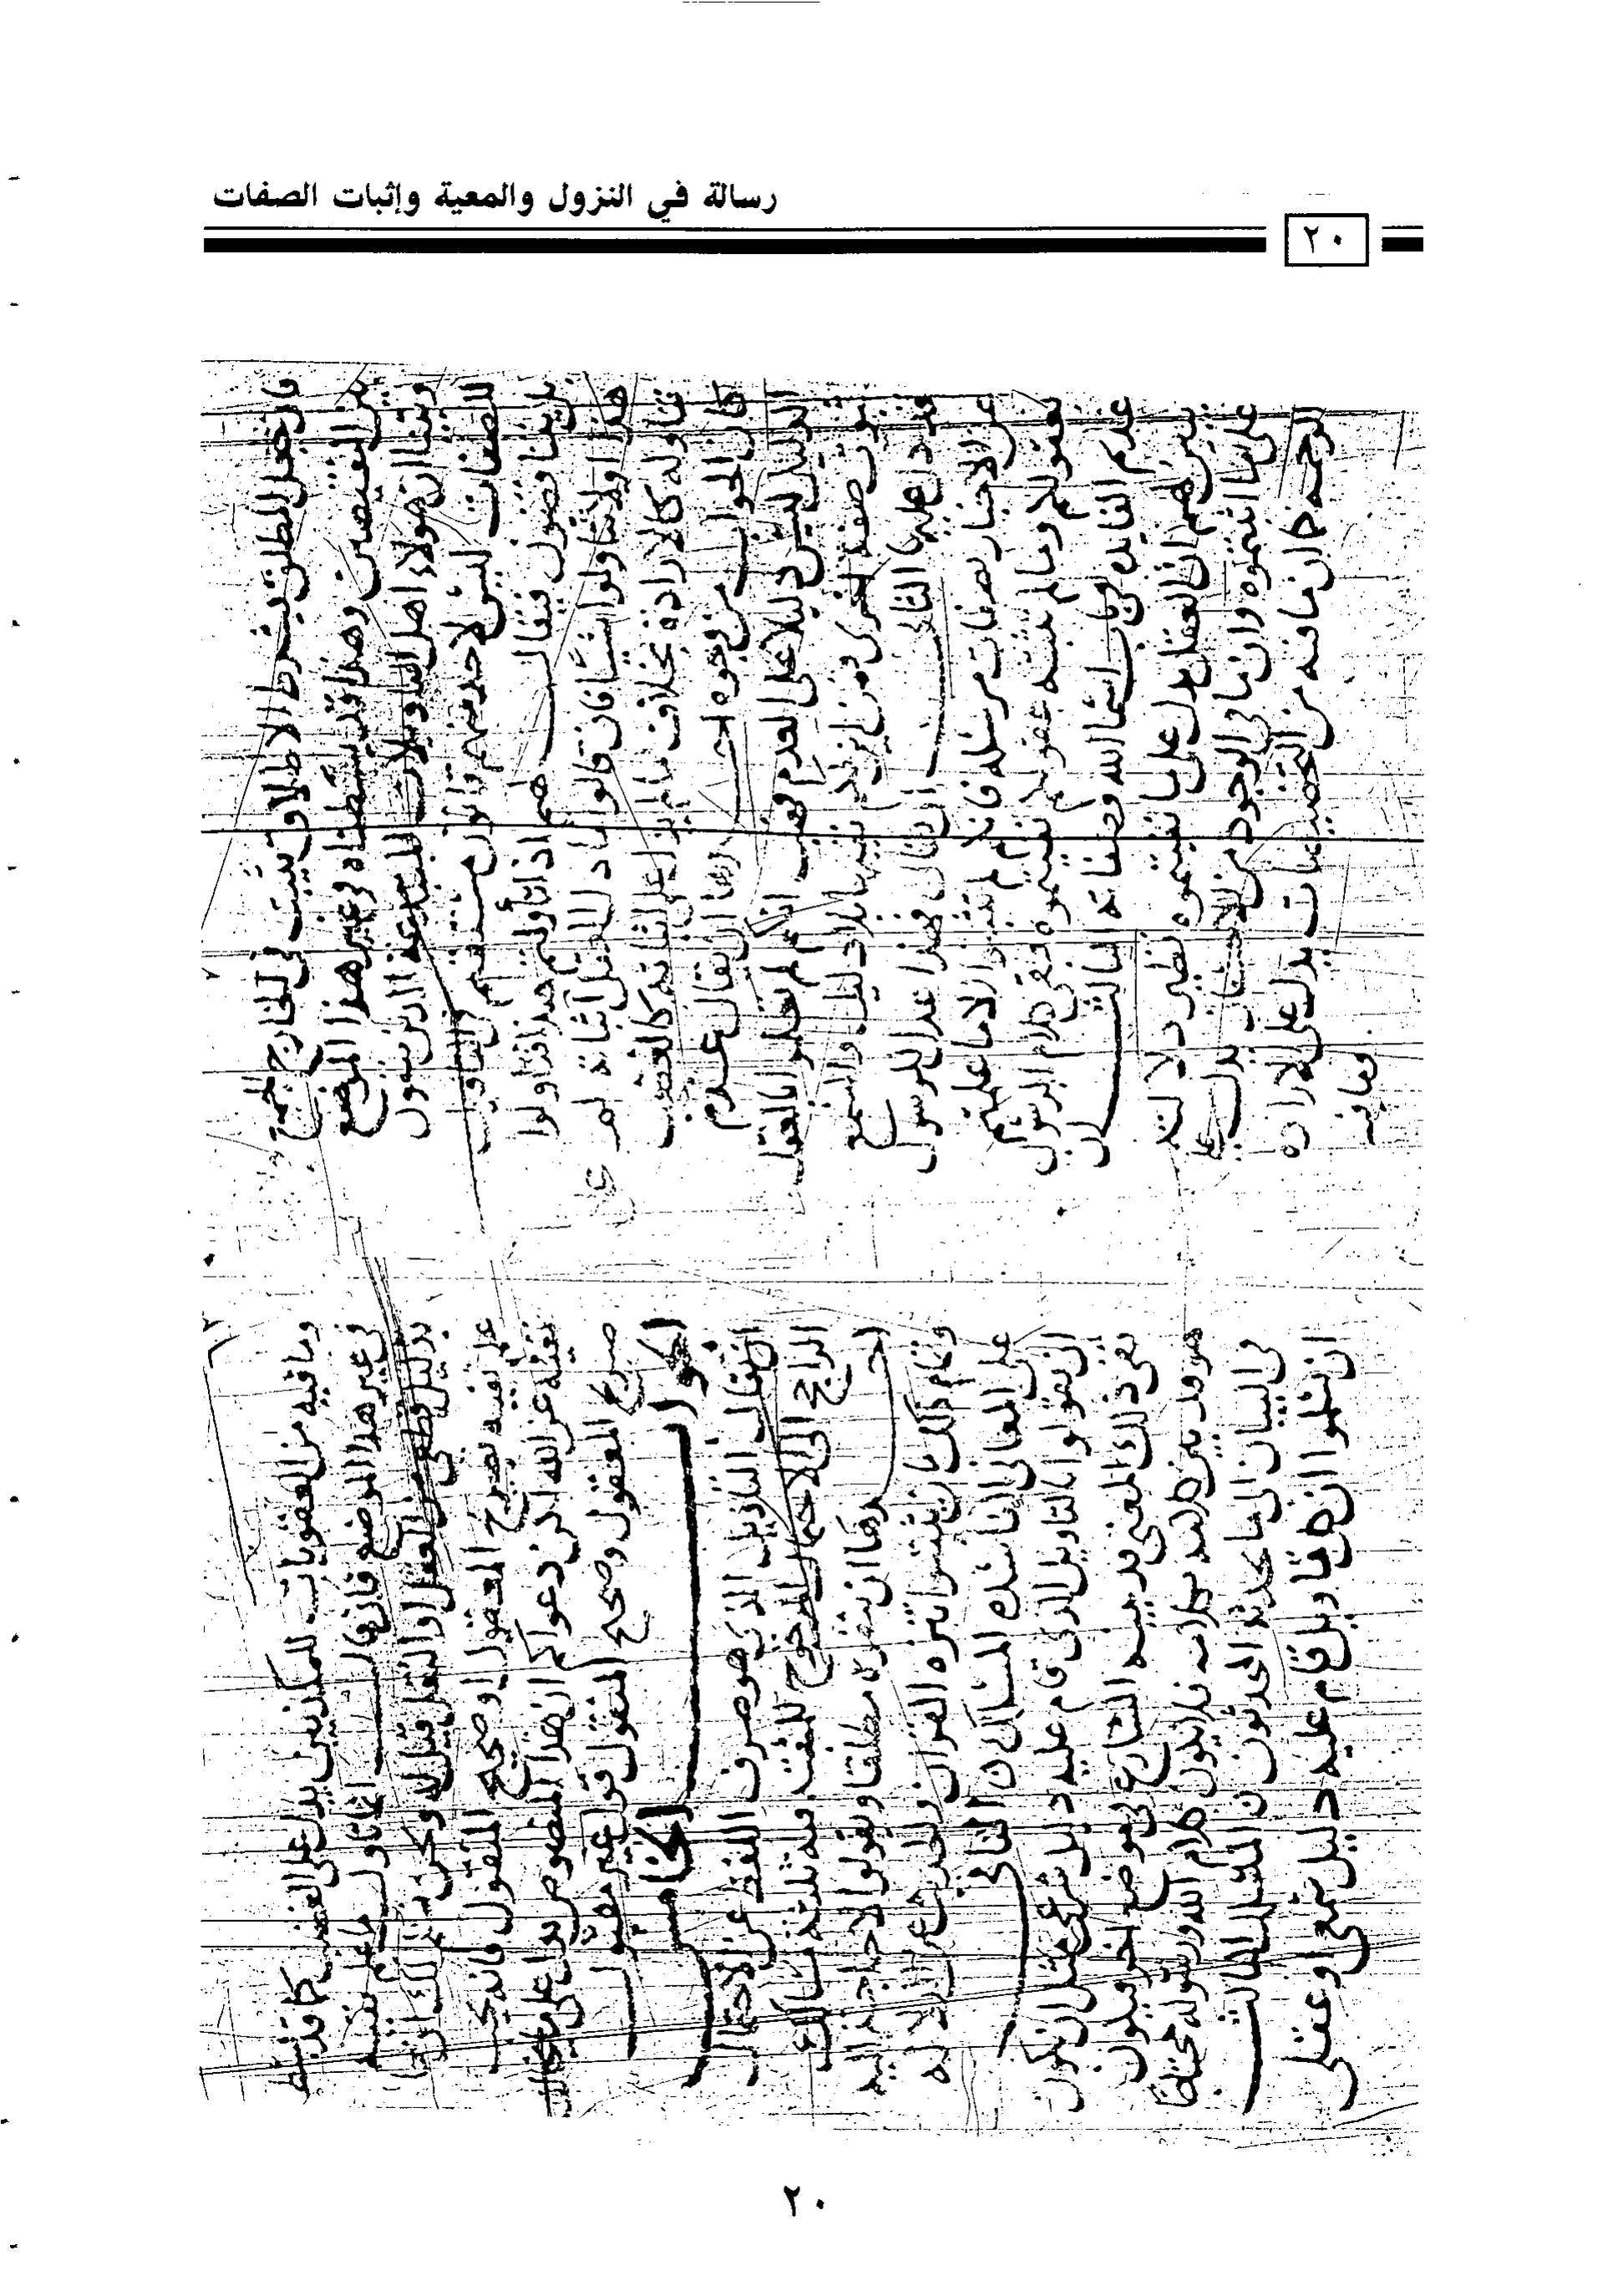 رسالة في النزول والمعية وإثبات الصفات
٢٠
فان جعل المطلق بشرط الاطلاق يثبت في الخارج لجمع
بين النقيضين وهذا قد بسطناه في غير هذا الموضع
وبينا ان هولاء اهل التاويلات المبتدعة الذين ينفون
الصفات ليس لاحد منهم قانون مستقيم في التاويل
بل يتناقضون فيقال لهم اذا تأولتم هذا فتأولوا
هذا او لا تتاولوا شيئا فان قالوا ما دل العقل اثباته لم
نتاوله كالارادة بخلاف ما لم يدل على اثباته كالغضب
كان الجواب من وجوه احدها ان يقال عدم
الدليل ليس دليلا على العدم فهب انكم لم تعلموا بالعقل
ثبوت صفة اخرى فمن اين لكم نفيها بلا دليل والسمع
قد دل عليها الثاني ان يقال فهذا عزل للرسول
عن الاخبار بصفات مرسله فانكم لم تثبتوا الا ما علمتم
بعقولكم وما لم تثبته عقولكم نفيتموه فبقي كلام الرسول
عديم الفايدة في باب اسما الله وصفاته الثالث ان
نبين لهم ان العقل دل على ما نفيتموه نظير دلالته
على ما اثبتموه وان ما في الوجود من الاحسان يدل على
الرحمة كان ما فيه من التخصيصات يدل على الارادة
وما فيه
وما فيه من العقوبات للمكذبين يدل على الغضب كما قد بسط
في غير هذا الموضع فان قال انما اتاول ما علم نفيه
بدليل قطعي من العقل او النقل قيل له ونحن
علم نفيه بصريح المعقول او صحيح المنقول فانه يجب
نفيه عن الله لكن دعواكم ان هذا النصوص يدل على خلاف
صريح المعقول وصحيح المنقول قول غير مقبول
الجواب الخامس
ان يقال التاويل الذي هو صرف اللفظ عن الاحتمال
الراجح الى الاحتمال المرجوح للمثبتة فيه ثلثة مسالك
احدها ان ينفوه مطلقا ويقولوا لا حاجة اليه
وتمام ذلك بان يثبتوا تنزه القران والحديث عن الدلالة
على المعاني الفاسدة المسلك الثاني
ان يقولوا بالتاويل الذي قام عليه دليل شرعي مثل ان يكون
نفي ذلك المعنى قد بينه الشارع في موضع اخر فيكون
هو قد بين كلامه بكلامه فلا يكون كلام الله ورسوله محتاجا
في البيان الى ما يحدثه المحدثون المسلك الثالث
ان يقولوا ان كل تاويل قام عليه دليل سمعي او عقلي
٢٠